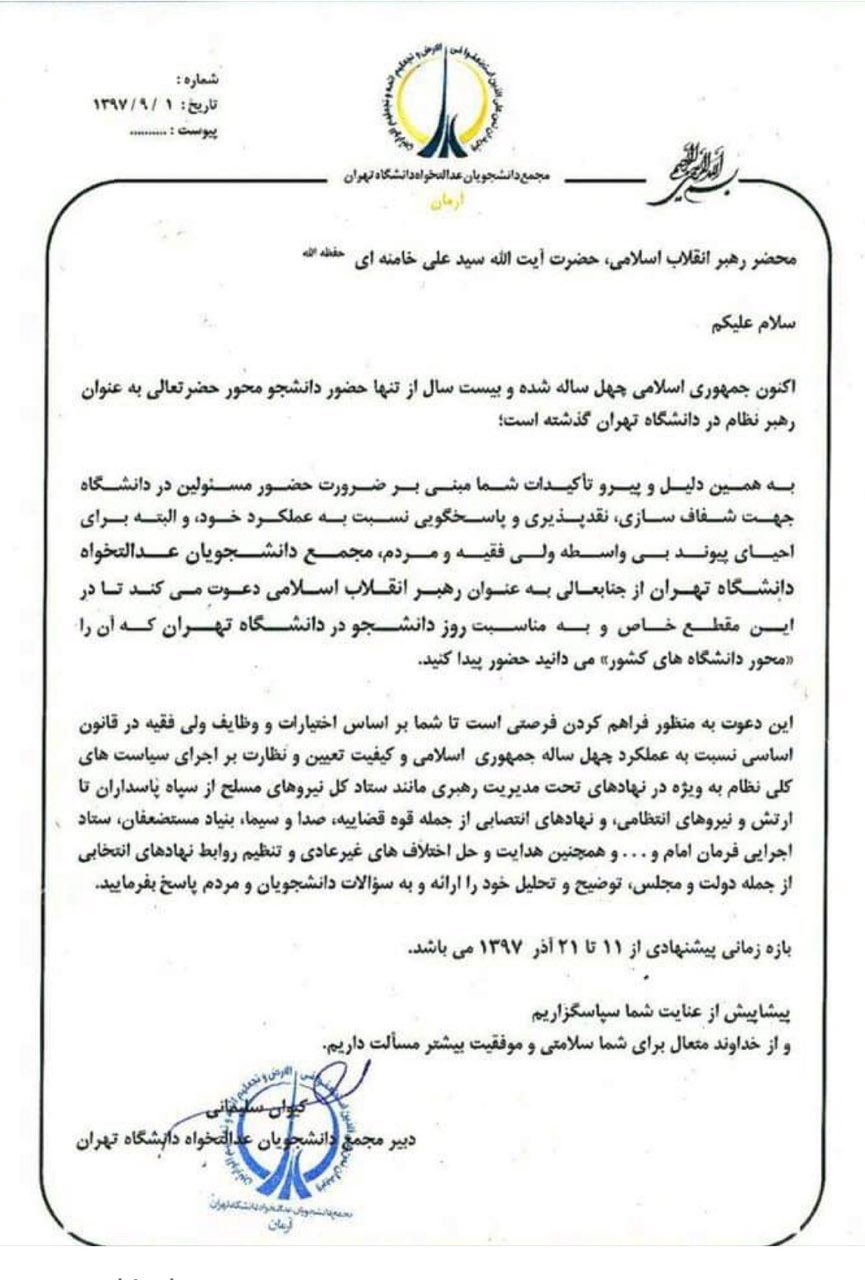 شماره :
تاریخ : ۱ / ۹ / ۱۳۹۷
پیوست : ..........
بسم الله الرحمن الرحیم
مجمع دانشجویان عدالتخواه دانشگاه تهران
آرمان
محضر رهبر انقلاب اسلامی، حضرت آیت الله سید علی خامنه ای حفظه الله
سلام علیکم
اکنون جمهوری اسلامی چهل ساله شده و بیست سال از تنها حضور دانشجو محور حضرتعالی به عنوان
رهبر نظام در دانشگاه تهران گذشته است؛
به همین دلیل و پیرو تأکیدات شما مبنی بر ضرورت حضور مسئولین در دانشگاه
جهت شفاف سازی، نقدپذیری و پاسخگویی نسبت به عملکرد خود، و البته برای
احیای پیوند بی واسطه ولی فقیه و مردم، مجمع دانشجویان عدالتخواه
دانشگاه تهران از جنابعالی به عنوان رهبر انقلاب اسلامی دعوت می کند تا در
این مقطع خاص و به مناسبت روز دانشجو در دانشگاه تهران که آن را
«محور دانشگاه های کشور» می دانید حضور پیدا کنید.
این دعوت به منظور فراهم کردن فرصتی است تا شما بر اساس اختیارات و وظایف ولی فقیه در قانون
اساسی نسبت به عملکرد چهل ساله جمهوری اسلامی و کیفیت تعیین و نظارت بر اجرای سیاست های
کلی نظام به ویژه در نهادهای تحت مدیریت رهبری مانند ستاد کل نیروهای مسلح از سپاه پاسداران تا
ارتش و نیروهای انتظامی، و نهادهای انتصابی از جمله قوه قضاییه، صدا و سیما، بنیاد مستضعفان، ستاد
اجرایی فرمان امام و . . . و همچنین هدایت و حل اختلاف های غیرعادی و تنظیم روابط نهادهای انتخابی
از جمله دولت و مجلس، توضیح و تحلیل خود را ارائه و به سؤالات دانشجویان و مردم پاسخ بفرمایید.
بازه زمانی پیشنهادی از ۱۱ تا ۲۱ آذر ۱۳۹۷ می باشد.
پیشاپیش از عنایت شما سپاسگزاریم
و از خداوند متعال برای شما سلامتی و موفقیت بیشتر مسألت داریم.
کیوان سلیمانی
دبیر مجمع دانشجویان عدالتخواه دانشگاه تهران
مجمع دانشجویان عدالتخواه دانشگاه تهران
آرمان